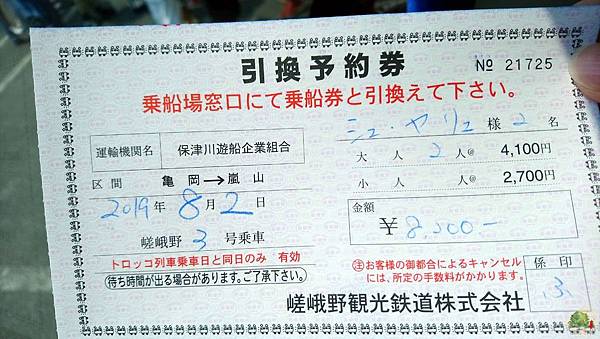 引換予約券
№ 21725
乗船場窓口にて乗船券と引換えて下さい。
運輸機関名 保津川遊船企業組合
シュ・ヤリュ 様 2 名
大 人 2 人@ 4,100円
区 間 亀 岡→嵐 山
小 人 人@ 2,700円
2019 年 8 月 2 日
金額
¥ 8,200-
嵯峨野 3 号乗車
トロッコ列車乗車日と同日のみ 有効
待ち時間が出る場合があります。ご了承下さい。
注お客様の御都合によるキャンセル
には、所定の手数料がかかります。
係 印
嵯峨野観光鉄道株式会社